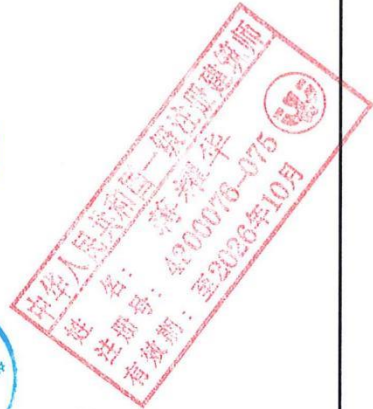 中华人民共和国一级注册建筑师
姓 名：
注册号：4200076-075
有效期：至2026年10月